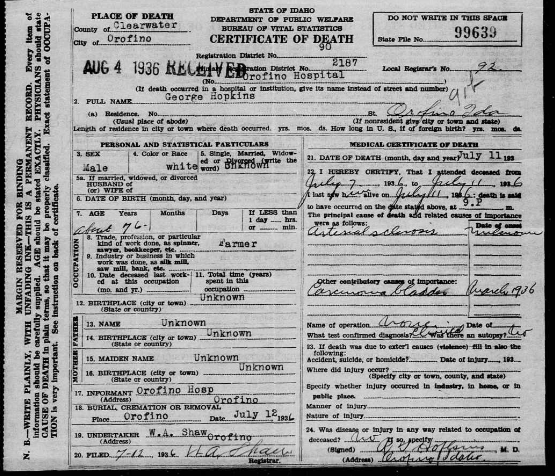 STATE OF IDAHO
DEPARTMENT OF PUBLIC WELFARE
BUREAU OF VITAL STATISTICS
CERTIFICATE OF DEATH
DO NOT WRITE IN THIS SPACE
State File No. 99639
PLACE OF DEATH
County of Clearwater
City of Orofino
90
Registration District No.
AUG 4 1936 RECEIVED
Registration District No. 2187
Local Registrar's No. 92
(No. Orofino Hospital
(If death occurred in a hospital or institution, give its name instead of street and number)
915
2. FULL NAME George Hopkins
(a) Residence. No. St. Orofino Ida
(Usual place of abode) (If nonresident give city or town and state)
Length of residence in city or town where death occurred. yrs. mos. da. How long in U. S., if of foreign birth? yrs. mos. da.
PERSONAL AND STATISTICAL PARTICULARS
3. SEX Male
4. Color or Race white
5. Single, Married, Widowed, or Divorced (write the word) Unknown
5a. If married, widowed, or divorced
HUSBAND of
(or) WIFE of
6. DATE OF BIRTH (month, day, and year)
7. AGE Years Months Days If LESS than 1 day, hrs. or min.
about 76
OCCUPATION
8. Trade, profession, or particular kind of work done, as spinner, sawyer, bookkeeper, etc. Farmer
9. Industry or business in which work was done, as silk mill, saw mill, bank, etc.
10. Date deceased last worked at this occupation (mo. and yr.)
11. Total time (years) spent in this occupation
12. BIRTHPLACE (city or town) Unknown
(State or country)
FATHER
13. NAME Unknown
14. BIRTHPLACE (city or town) Unknown
(State or country)
MOTHER
15. MAIDEN NAME Unknown
16. BIRTHPLACE (city or town) Unknown
(State or country)
17. INFORMANT Orofino Hosp
(Address) Orofino
18. BURIAL, CREMATION OR REMOVAL
Place Orofino Date July 12 1936
19. UNDERTAKER W.A. Shaw
(Address) Orofino
20. FILED 7-12 1936 W A Shaw
Registrar.
MEDICAL CERTIFICATE OF DEATH
21. DATE OF DEATH (month, day and year) July 11 193
22. I HEREBY CERTIFY, That I attended deceased from
July 7 1936 to July 11 1936
I last saw alive on July 11 1936; death is said
to have occurred on the date stated above, at 9.P m
The principal cause of death and related causes of importance were as follows: Date of onset
Arterial sclerosis unknown
Other contributory causes of importance:
Carcinoma bladder March 1936
Name of operation none Date of
What test confirmed diagnosis? Was there an autopsy? no
23. If death was due to external causes (violence) fill in also the following:
Accident, suicide, or homicide? Date of injury , 193
Where did injury occur?
(Specify city or town, county, and state)
Specify whether injury occurred in industry, in home, or in public place.
Manner of injury
Nature of injury
24. Was disease or injury in any way related to occupation of deceased? no If so, specify
(Signed) M. D.
(Address) Orofino Idaho
MARGIN RESERVED FOR BINDING
N. B.—WRITE PLAINLY, WITH UNFADING INK—THIS IS A PERMANENT RECORD. Every item of
information should be carefully supplied. AGE should be stated EXACTLY. PHYSICIANS should state
CAUSE OF DEATH in plain terms, so that it may be properly classified. Exact statement of OCCUPATION
is very important. See instruction on back of certificate.